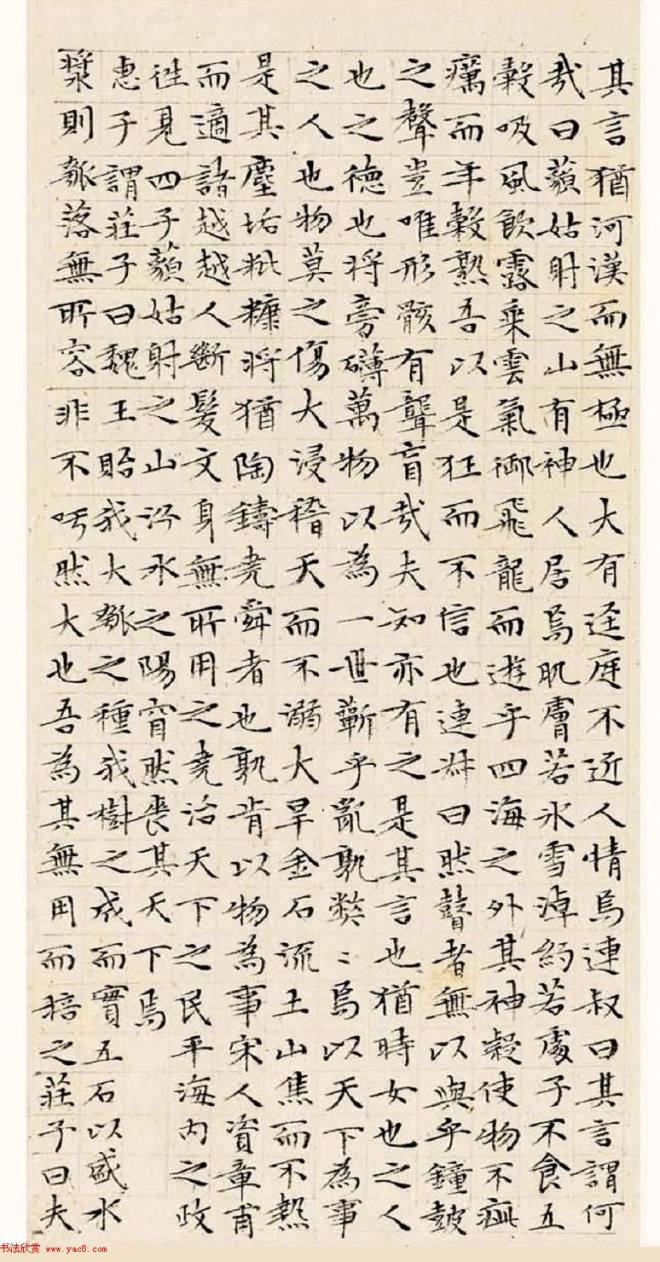 其言猶河漢而無極也大有逕庭不近人情焉連叔曰其言謂何
哉曰藐姑射之山有神人居焉肌膚若冰雪淖約若處子不食五
穀吸風飲露乘雲氣御飛龍而遊乎四海之外其神凝使物不疵
癘而年穀熟吾以是狂而不信也連叔曰然瞽者無以與乎鐘鼓
之聲豈唯形骸有聾盲哉夫知亦有之是其言也猶時女也之人
也之德也將旁礴萬物以為一世蘄乎亂孰獘〻焉以天下為事
之人也物莫之傷大浸稽天而不溺大旱金石流土山焦而不熱
是其塵垢粃糠將猶陶鑄堯舜者也孰肯以物為事宋人資章甫
而適諸越越人斷髮文身無所用之堯治天下之民平海内之政
往見四子藐姑射之山汾水之陽窅然喪其天下焉
惠子謂莊子曰魏王貽我大瓠之種我樹之成而實五石以盛水
漿則瓠落無所容非不呺然大也吾為其無用而掊之莊子曰夫
书法欣赏 www.yac8.com